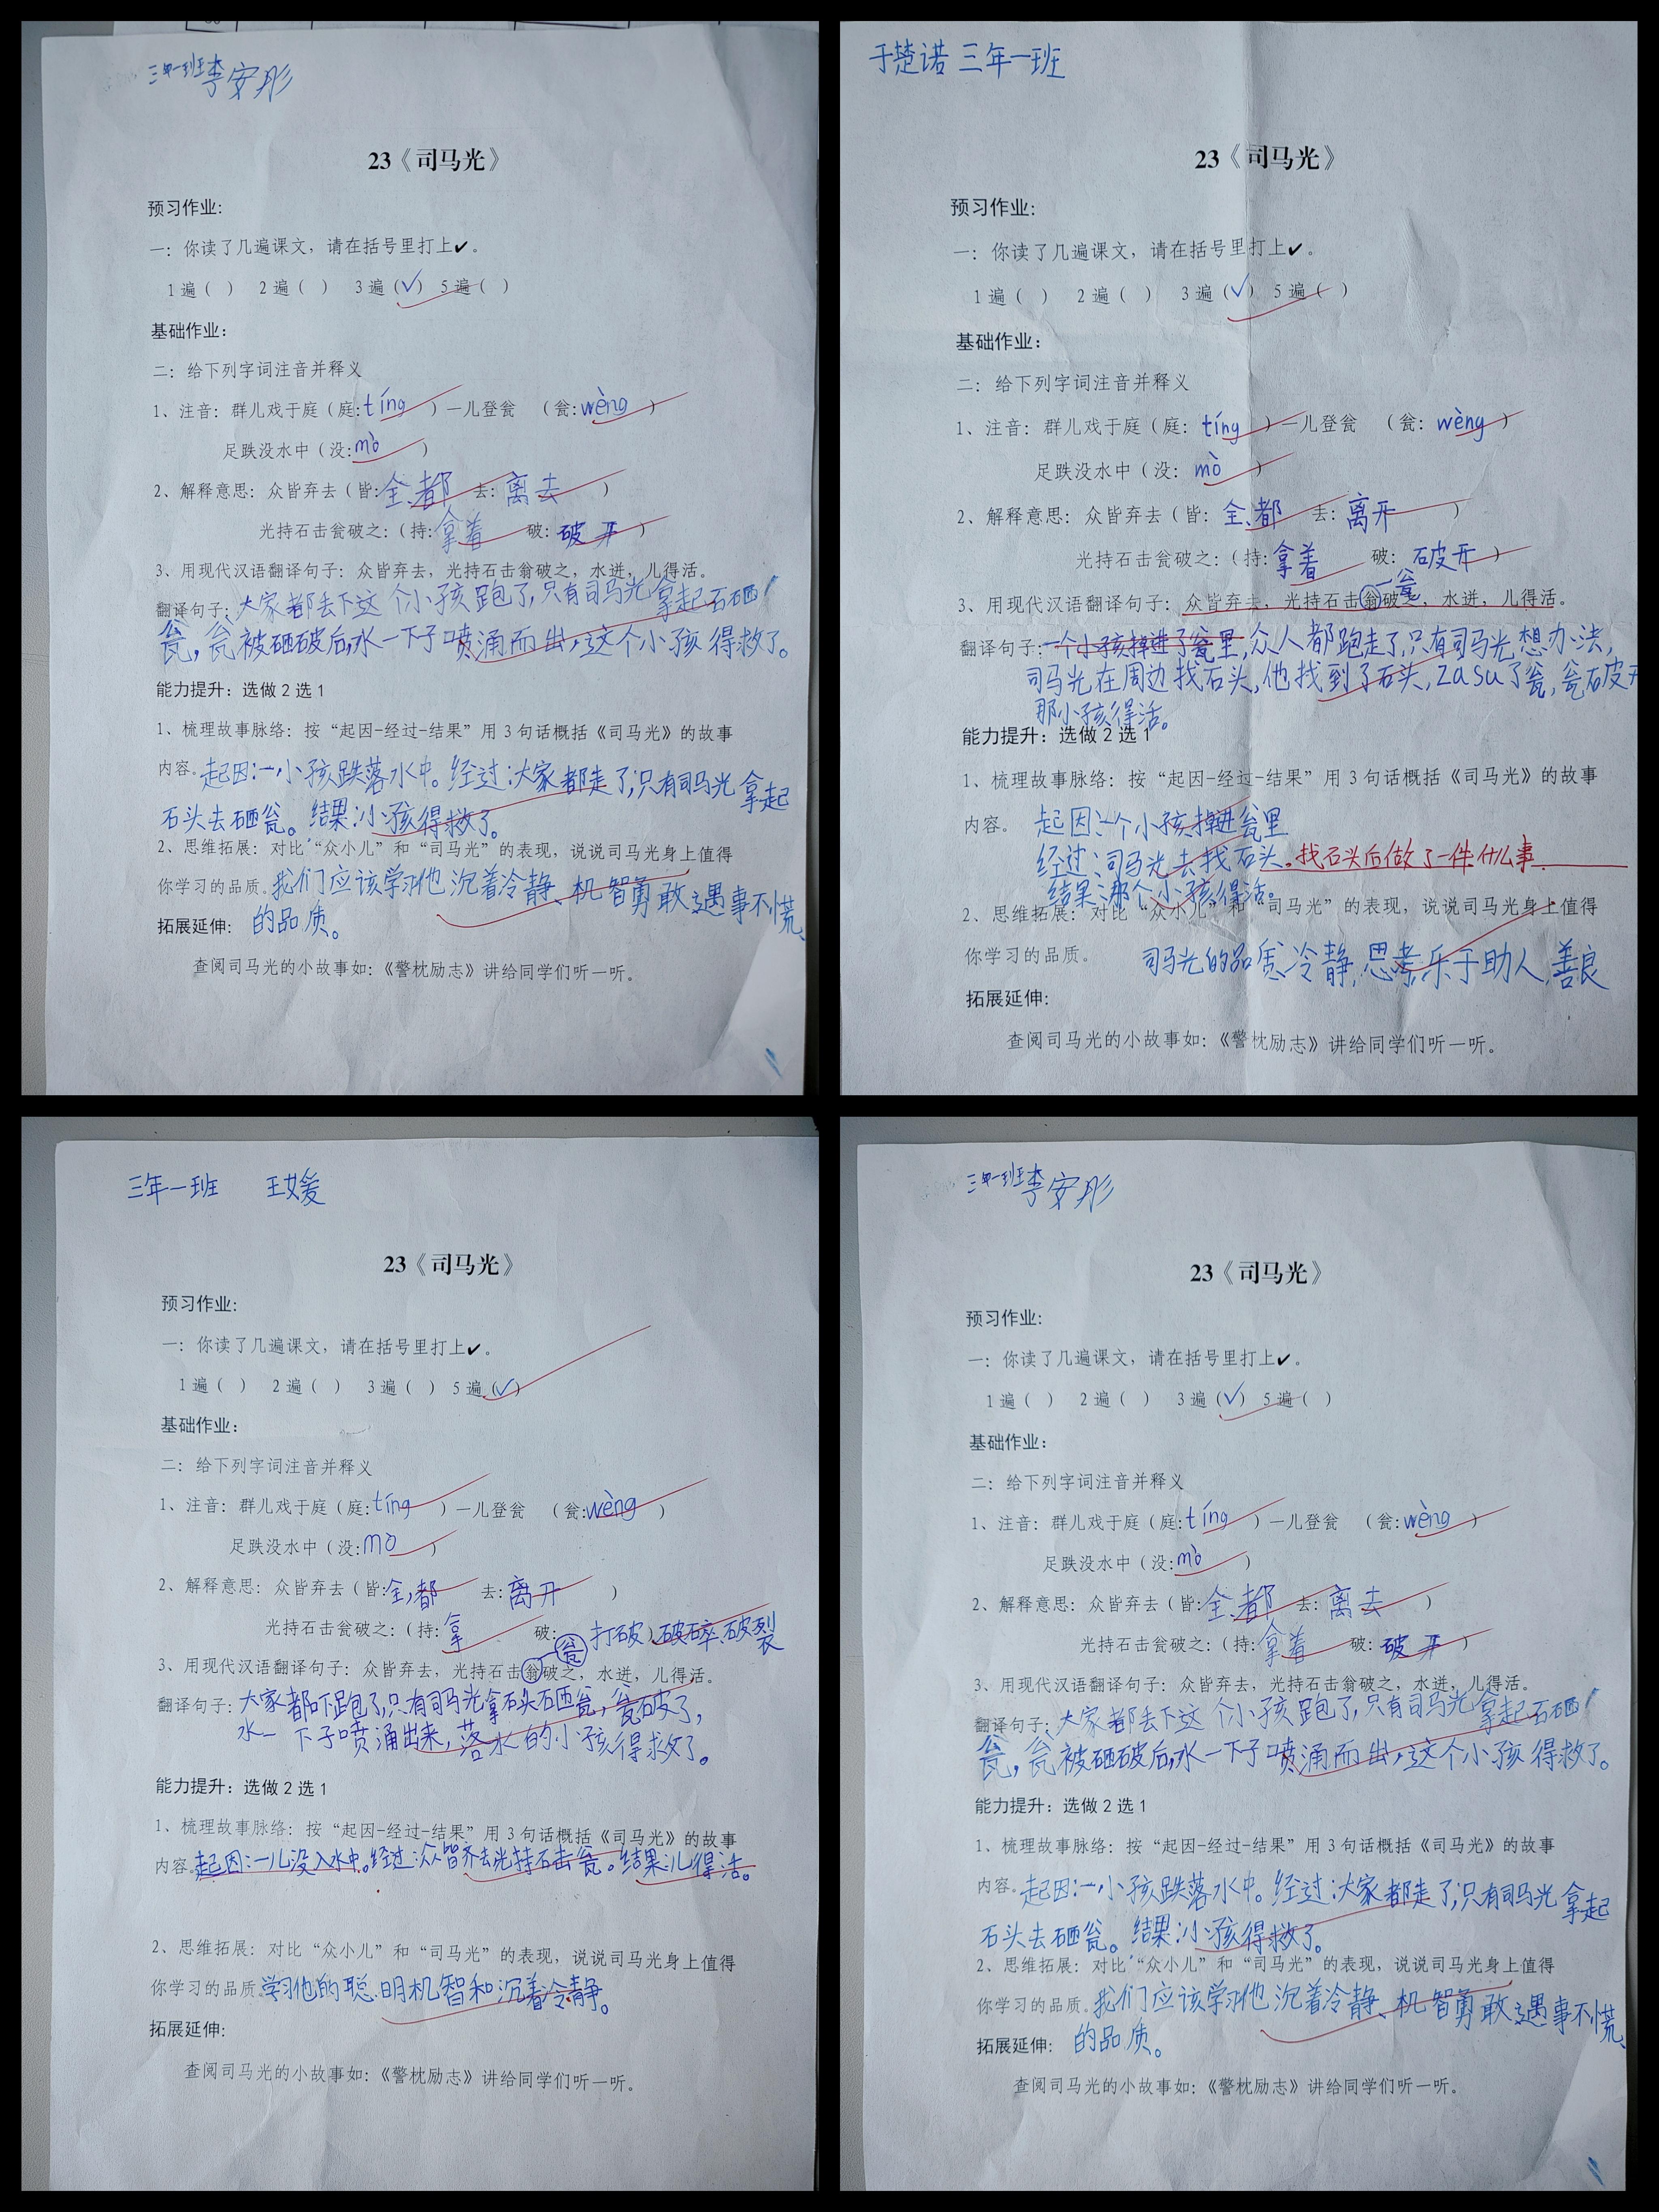 三年一班李安彤
23《司马光》
预习作业:
一: 你读了几遍课文, 请在括号里打上✔。
1遍( ) 2遍( ) 3遍(√) 5遍( )
基础作业:
二: 给下列字词注音并释义
1、注音: 群儿戏于庭(庭:tíng )一儿登瓮 (瓮:wèng )
足跌没水中(没:mò )
2、解释意思: 众皆弃去(皆:全、都 去: 离去 )
光持石击瓮破之: (持:拿着 破: 破开 )
3、用现代汉语翻译句子: 众皆弃去, 光持石击翁破之, 水迸, 儿得活。
翻译句子: 大家都丢下这个小孩跑了,只有司马光拿起石砸
瓮,瓮被砸破后,水一下子喷涌而出,这个小孩得救了。
能力提升: 选做2选1
1、梳理故事脉络: 按“起因-经过-结果”用3句话概括《司马光》的故事
内容。起因:一小孩跌落水中。经过:大家都走了,只有司马光拿起
石头去砸瓮。结果:小孩得救了。
2、思维拓展: 对比“众小儿”和“司马光”的表现, 说说司马光身上值得
你学习的品质。我们应该学习他沉着冷静、机智勇敢遇事不慌、
拓展延伸: 的品质。
查阅司马光的小故事如:《警枕励志》讲给同学们听一听。
于楚诺 三年一班
23《司马光》
预习作业:
一: 你读了几遍课文, 请在括号里打上✔。
1遍( ) 2遍( ) 3遍(√) 5遍( )
基础作业:
二: 给下列字词注音并释义
1、注音: 群儿戏于庭(庭: tíng )一儿登瓮 (瓮: wèng )
足跌没水中(没: mò )
2、解释意思: 众皆弃去(皆: 全、都 去: 离开 )
光持石击瓮破之: (持: 拿着 破: 破开 )
瓮
3、用现代汉语翻译句子: 众皆弃去, 光持石击翁破之, 水迸, 儿得活。
翻译句子: 一个小孩掉进了瓮里,众人都跑走了,只有司马光想办法,
司马光在周边找石头,他找到了石头,zasu了瓮,瓮破开
那小孩得活。
能力提升: 选做2选1
1、梳理故事脉络: 按“起因-经过-结果”用3句话概括《司马光》的故事
内容。 起因:一个小孩掉进瓮里
经过:司马光去找石头。找石头后做了一件什么事
结果:那个小孩得活。
2、思维拓展: 对比“众小儿”和“司马光”的表现, 说说司马光身上值得
你学习的品质。 司马光的品质,冷静,思考,乐于助人,善良
拓展延伸:
查阅司马光的小故事如:《警枕励志》讲给同学们听一听。
三年一班 王媛
23《司马光》
预习作业:
一: 你读了几遍课文, 请在括号里打上✔。
1遍( ) 2遍( ) 3遍( ) 5遍(√)
基础作业:
二: 给下列字词注音并释义
1、注音: 群儿戏于庭(庭:tíng )一儿登瓮 (瓮:wèng )
足跌没水中(没:mò )
2、解释意思: 众皆弃去(皆:全,都 去: 离开 )
光持石击瓮破之: (持:拿 破: 打破)破碎、破裂
瓮
3、用现代汉语翻译句子: 众皆弃去, 光持石击翁破之, 水迸, 儿得活。
翻译句子: 大家都吓跑了,只有司马光拿石头石砸瓮,瓮破了,
水一下子喷涌出来,落水的小孩得救了。
能力提升: 选做2选1
1、梳理故事脉络: 按“起因-经过-结果”用3句话概括《司马光》的故事
内容。起因:一儿没入水中。经过:众皆弃去光持石击瓮。结果:儿得活。
2、思维拓展: 对比“众小儿”和“司马光”的表现, 说说司马光身上值得
你学习的品质。学习他的聪明机智和沉着冷静。
拓展延伸:
查阅司马光的小故事如:《警枕励志》讲给同学们听一听。
三年一班李安彤
23《司马光》
预习作业:
一: 你读了几遍课文, 请在括号里打上✔。
1遍( ) 2遍( ) 3遍(√) 5遍( )
基础作业:
二: 给下列字词注音并释义
1、注音: 群儿戏于庭(庭:tíng )一儿登瓮 (瓮:wèng )
足跌没水中(没:mò )
2、解释意思: 众皆弃去(皆:全、都 去: 离去 )
光持石击瓮破之: (持:拿着 破: 破开 )
3、用现代汉语翻译句子: 众皆弃去, 光持石击翁破之, 水迸, 儿得活。
翻译句子: 大家都丢下这个小孩跑了,只有司马光拿起石砸
瓮,瓮被砸破后,水一下子喷涌而出,这个小孩得救了。
能力提升: 选做2选1
1、梳理故事脉络: 按“起因-经过-结果”用3句话概括《司马光》的故事
内容。起因:一小孩跌落水中。经过:大家都走了,只有司马光拿起
石头去砸瓮。结果:小孩得救了。
2、思维拓展: 对比“众小儿”和“司马光”的表现, 说说司马光身上值得
你学习的品质。我们应该学习他沉着冷静、机智勇敢遇事不慌、
拓展延伸: 的品质。
查阅司马光的小故事如:《警枕励志》讲给同学们听一听。